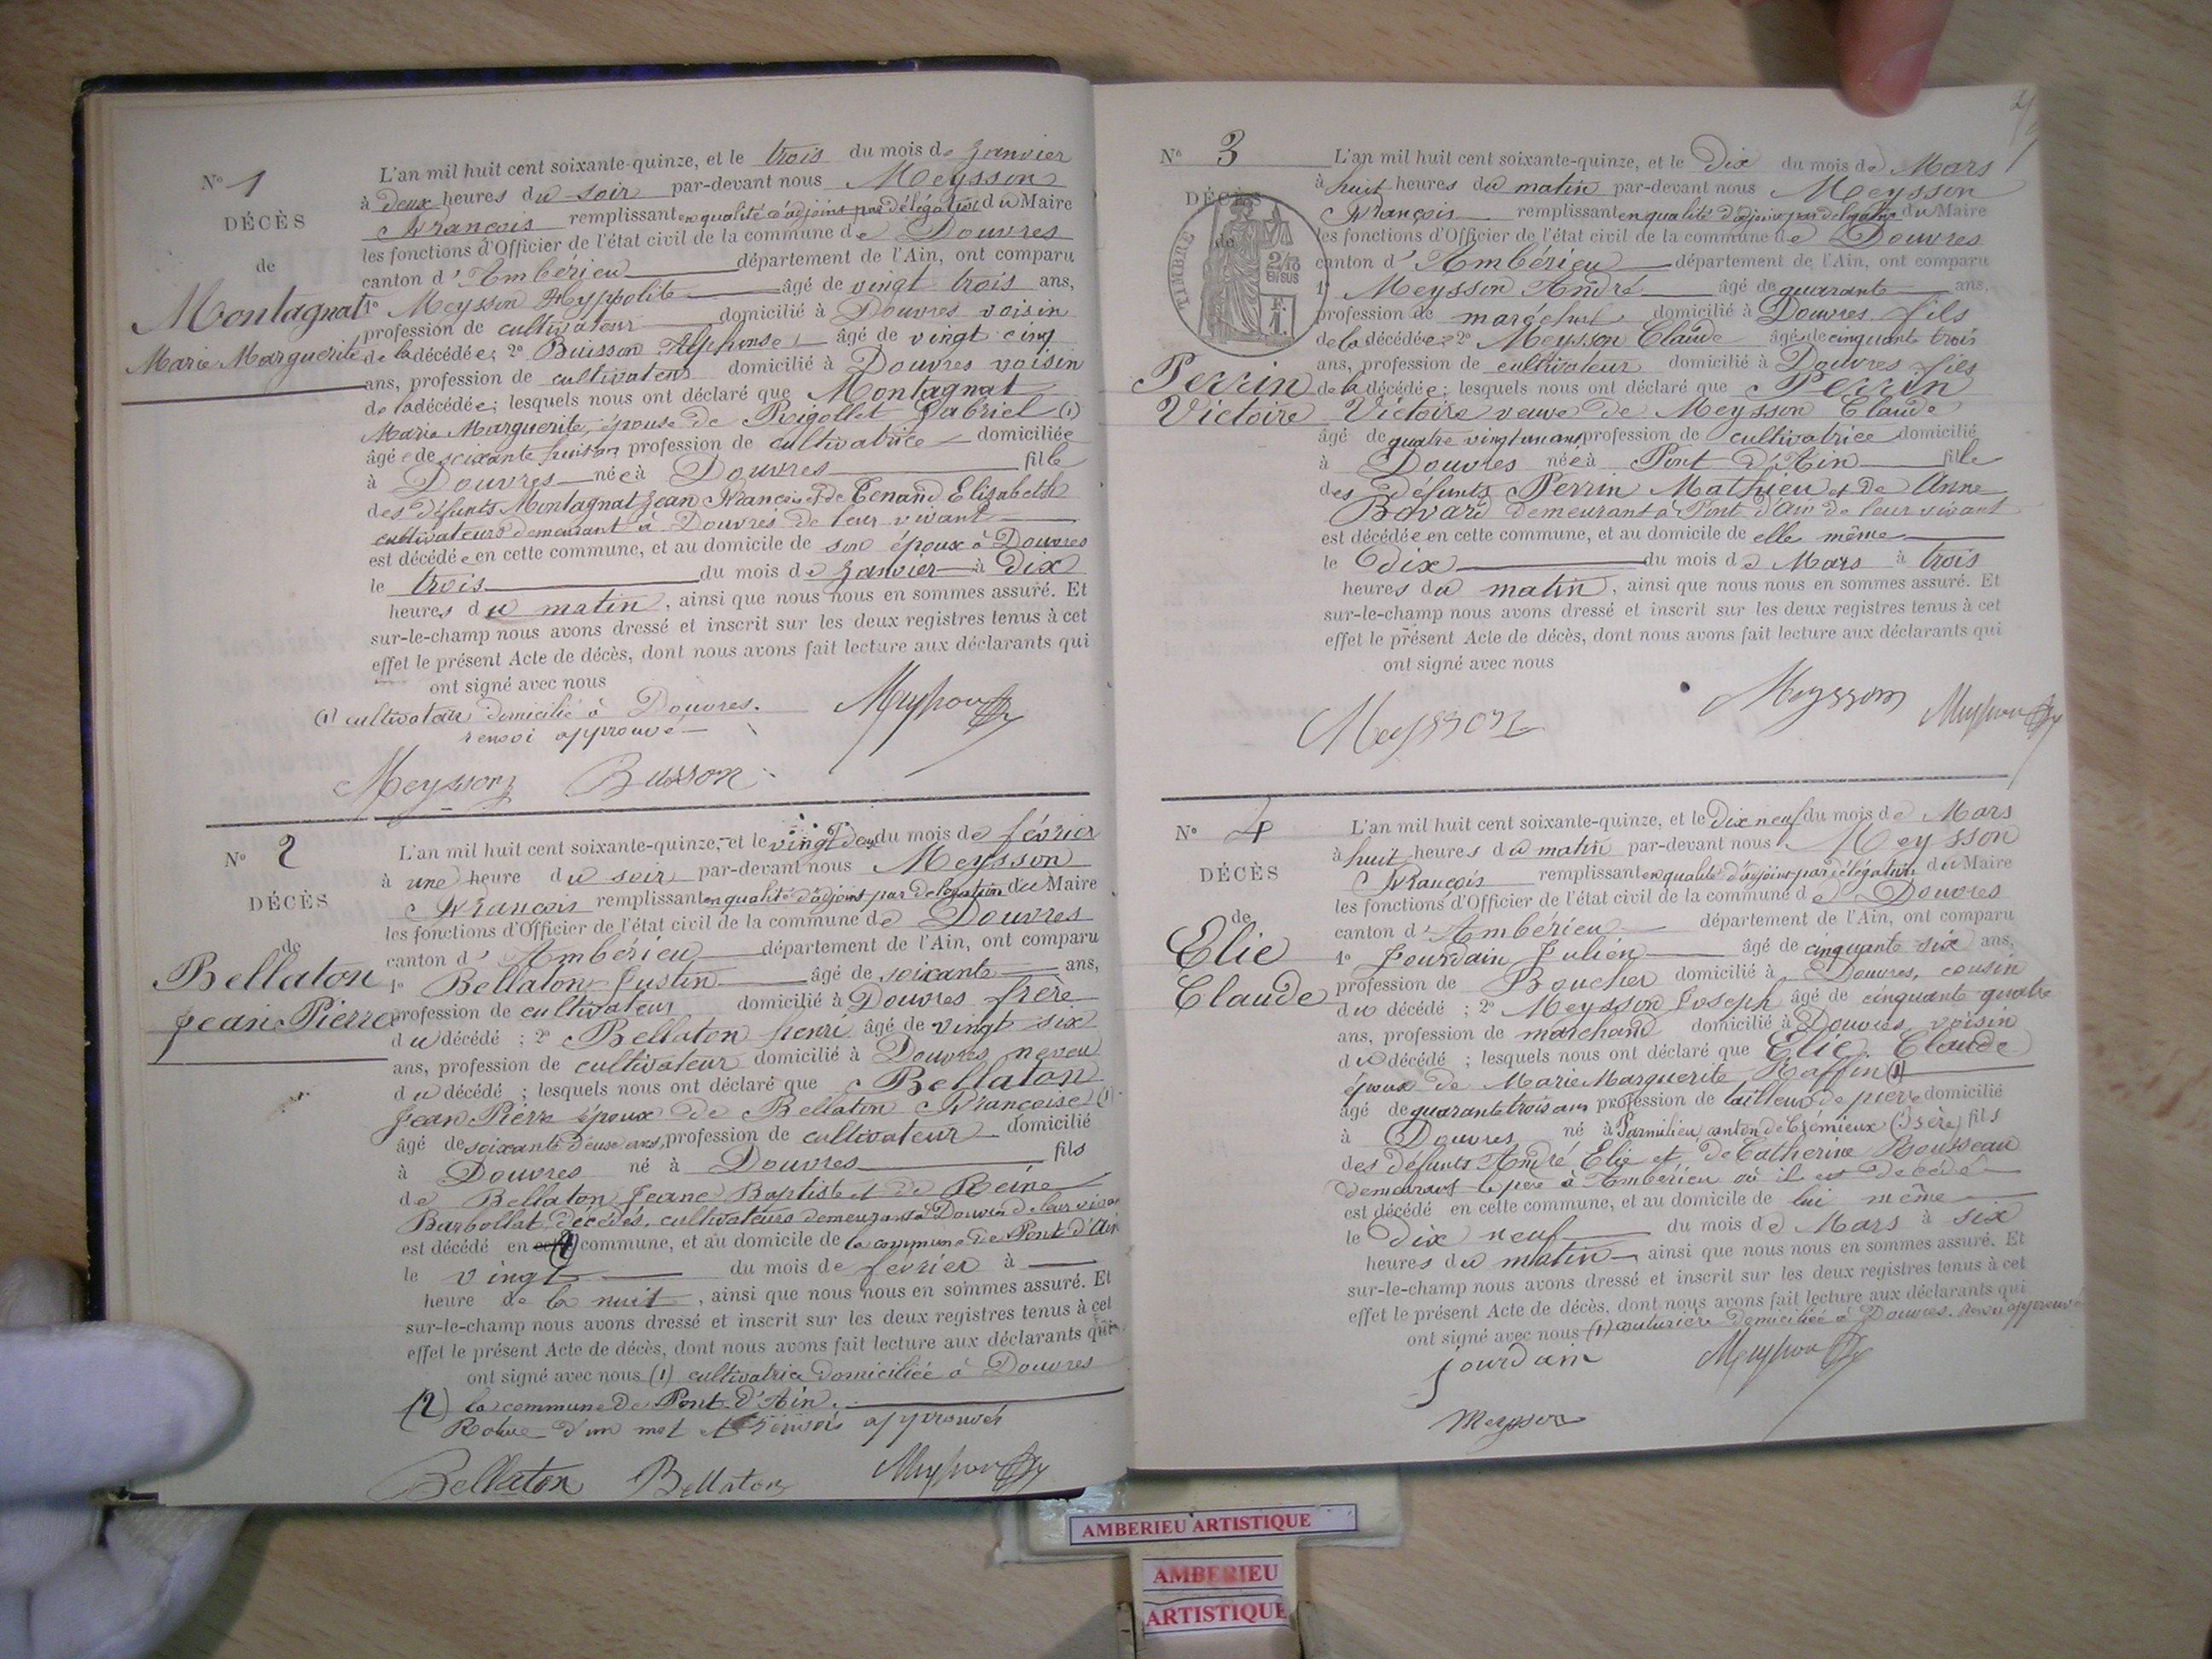 N° 1
DÉCÈS
de
Montagnat
Marie Marguerite
L'an mil huit cent soixante-quinze, et le trois du mois de Janvier
à deux heures du soir par-devant nous Meysson
François remplissant en qualité d'adjoint par délégation du Maire
les fonctions d'Officier de l'état civil de la commune de Douvres
canton d'Ambérieu département de l'Ain, ont comparu
1° Meysson Hyppolite âgé de vingt trois ans,
profession de cultivateur domicilié à Douvres voisin
de la décédée; 2° Buisson Alphonse âgé de vingt cinq
ans, profession de cultivateur domicilié à Douvres voisin
de la décédée; lesquels nous ont déclaré que Montagnat
Marie Marguerite, épouse de Rigollet Gabriel (1)
âgée de soixante huit ans profession de cultivatrice domiciliée
à Douvres née à Douvres fille
des défunts Montagnat Jean François et de Tenand Elisabeth
cultivateurs demeurant à Douvres de leur vivant
est décédée en cette commune, et au domicile de son époux à Douvres
le trois du mois de Janvier à dix
heures du matin, ainsi que nous nous en sommes assuré. Et
sur-le-champ nous avons dressé et inscrit sur les deux registres tenus à cet
effet le présent Acte de décès, dont nous avons fait lecture aux déclarants qui
ont signé avec nous
(1) cultivateur domicilié à Douvres.
renvoi approuvé
Meysson
Meysson Buisson
N° 2
DÉCÈS
de
Bellaton
Jean Pierre
L'an mil huit cent soixante-quinze, et le vingt deux du mois de février
à une heure du soir par-devant nous Meysson
François remplissant en qualité d'adjoint par délégation du Maire
les fonctions d'Officier de l'état civil de la commune de Douvres
canton d'Ambérieu département de l'Ain, ont comparu
1° Bellaton Justin âgé de soixante ans,
profession de cultivateur domicilié à Douvres frère
du décédé ; 2° Bellaton henri âgé de vingt six
ans, profession de cultivateur domicilié à Douvres neveu
du décédé ; lesquels nous ont déclaré que Bellaton
Jean Pierre époux de Bellaton Françoise (1)
âgé de soixante deux ans, profession de cultivateur domicilié
à Douvres né à Douvres fils
de Bellaton Jeane Baptiste et de Reine
Barbollat décédés, cultivateurs demeurant à Douvres de leur vivant
est décédé en (2) commune, et au domicile de la commune de Pont d'Ain
le vingt du mois de février à
heure de la nuit, ainsi que nous nous en sommes assuré. Et
sur-le-champ nous avons dressé et inscrit sur les deux registres tenus à cet
effet le présent Acte de décès, dont nous avons fait lecture aux déclarants qui
ont signé avec nous (1) cultivatrice domiciliée à Douvres
(2) la commune de Pont d'Ain.
Rature d'un mot et renvois approuvés
Bellaton Bellaton Meysson
N° 3
DÉCÈS
de
TIMBRE
2/10
EN SUS
Perrin
Victoire
L'an mil huit cent soixante-quinze, et le Dix du mois de Mars
à huit heures du matin par-devant nous Meysson
François remplissant en qualité d'adjoint par délégation du Maire
les fonctions d'Officier de l'état civil de la commune de Douvres
canton d'Ambérieu département de l'Ain, ont comparu
1° Meysson André âgé de quarante ans,
profession de domicilié à Douvres fils
de la décédée; 2° Meysson Claude âgé de cinquante trois
ans, profession de cultivateur domicilié à Douvres fils
de la décédée; lesquels nous ont déclaré que Perrin
Victoire veuve de Meysson Claude
âgé de quatre vingt un ans profession de cultivatrice domicilié
à Douvres née à Pont d'Ain fille
des défunts Perrin Mathieu et de Anne
Bavard demeurant à Pont d'Ain de leur vivant
est décédée en cette commune, et au domicile de elle même
le Dix du mois de Mars à trois
heures du matin, ainsi que nous nous en sommes assuré. Et
sur-le-champ nous avons dressé et inscrit sur les deux registres tenus à cet
effet le présent Acte de décès, dont nous avons fait lecture aux déclarants qui
ont signé avec nous
Meysson Meysson Meysson
N° 4
DÉCÈS
de
Elie
Claude
L'an mil huit cent soixante-quinze, et le Dix neuf du mois de Mars
à huit heures du matin par-devant nous Meysson
François remplissant en qualité d'adjoint par délégation du Maire
les fonctions d'Officier de l'état civil de la commune de Douvres
canton d'Ambérieu département de l'Ain, ont comparu
1° Jourdain Julien âgé de cinquante six ans,
profession de Boucher domicilié à Douvres, cousin
du décédé ; 2° Meysson Joseph âgé de cinquante quatre
ans, profession de marchand domicilié à Douvres voisin
du décédé ; lesquels nous ont déclaré que Elie Claude
époux de Marie Marguerite Raffin (1)
âgé de quarante trois ans profession de tailleur de pierre domicilié
à Douvres né à Parmilieu canton de Crémieux (Isère) fils
des défunts André Elie et de Catherine Rousseau
demeurant le père à Ambérieu où il est décédé
est décédé en cette commune, et au domicile de lui même
le Dix neuf du mois de Mars à six
heures du matin ainsi que nous nous en sommes assuré. Et
sur-le-champ nous avons dressé et inscrit sur les deux registres tenus à cet
effet le présent Acte de décès, dont nous avons fait lecture aux déclarants qui
ont signé avec nous (1) couturière domiciliée à Douvres. renvoi approuvé
Jourdain Meysson
Meysson
AMBERIEU ARTISTIQUE
AMBERIEU
ARTISTIQUE